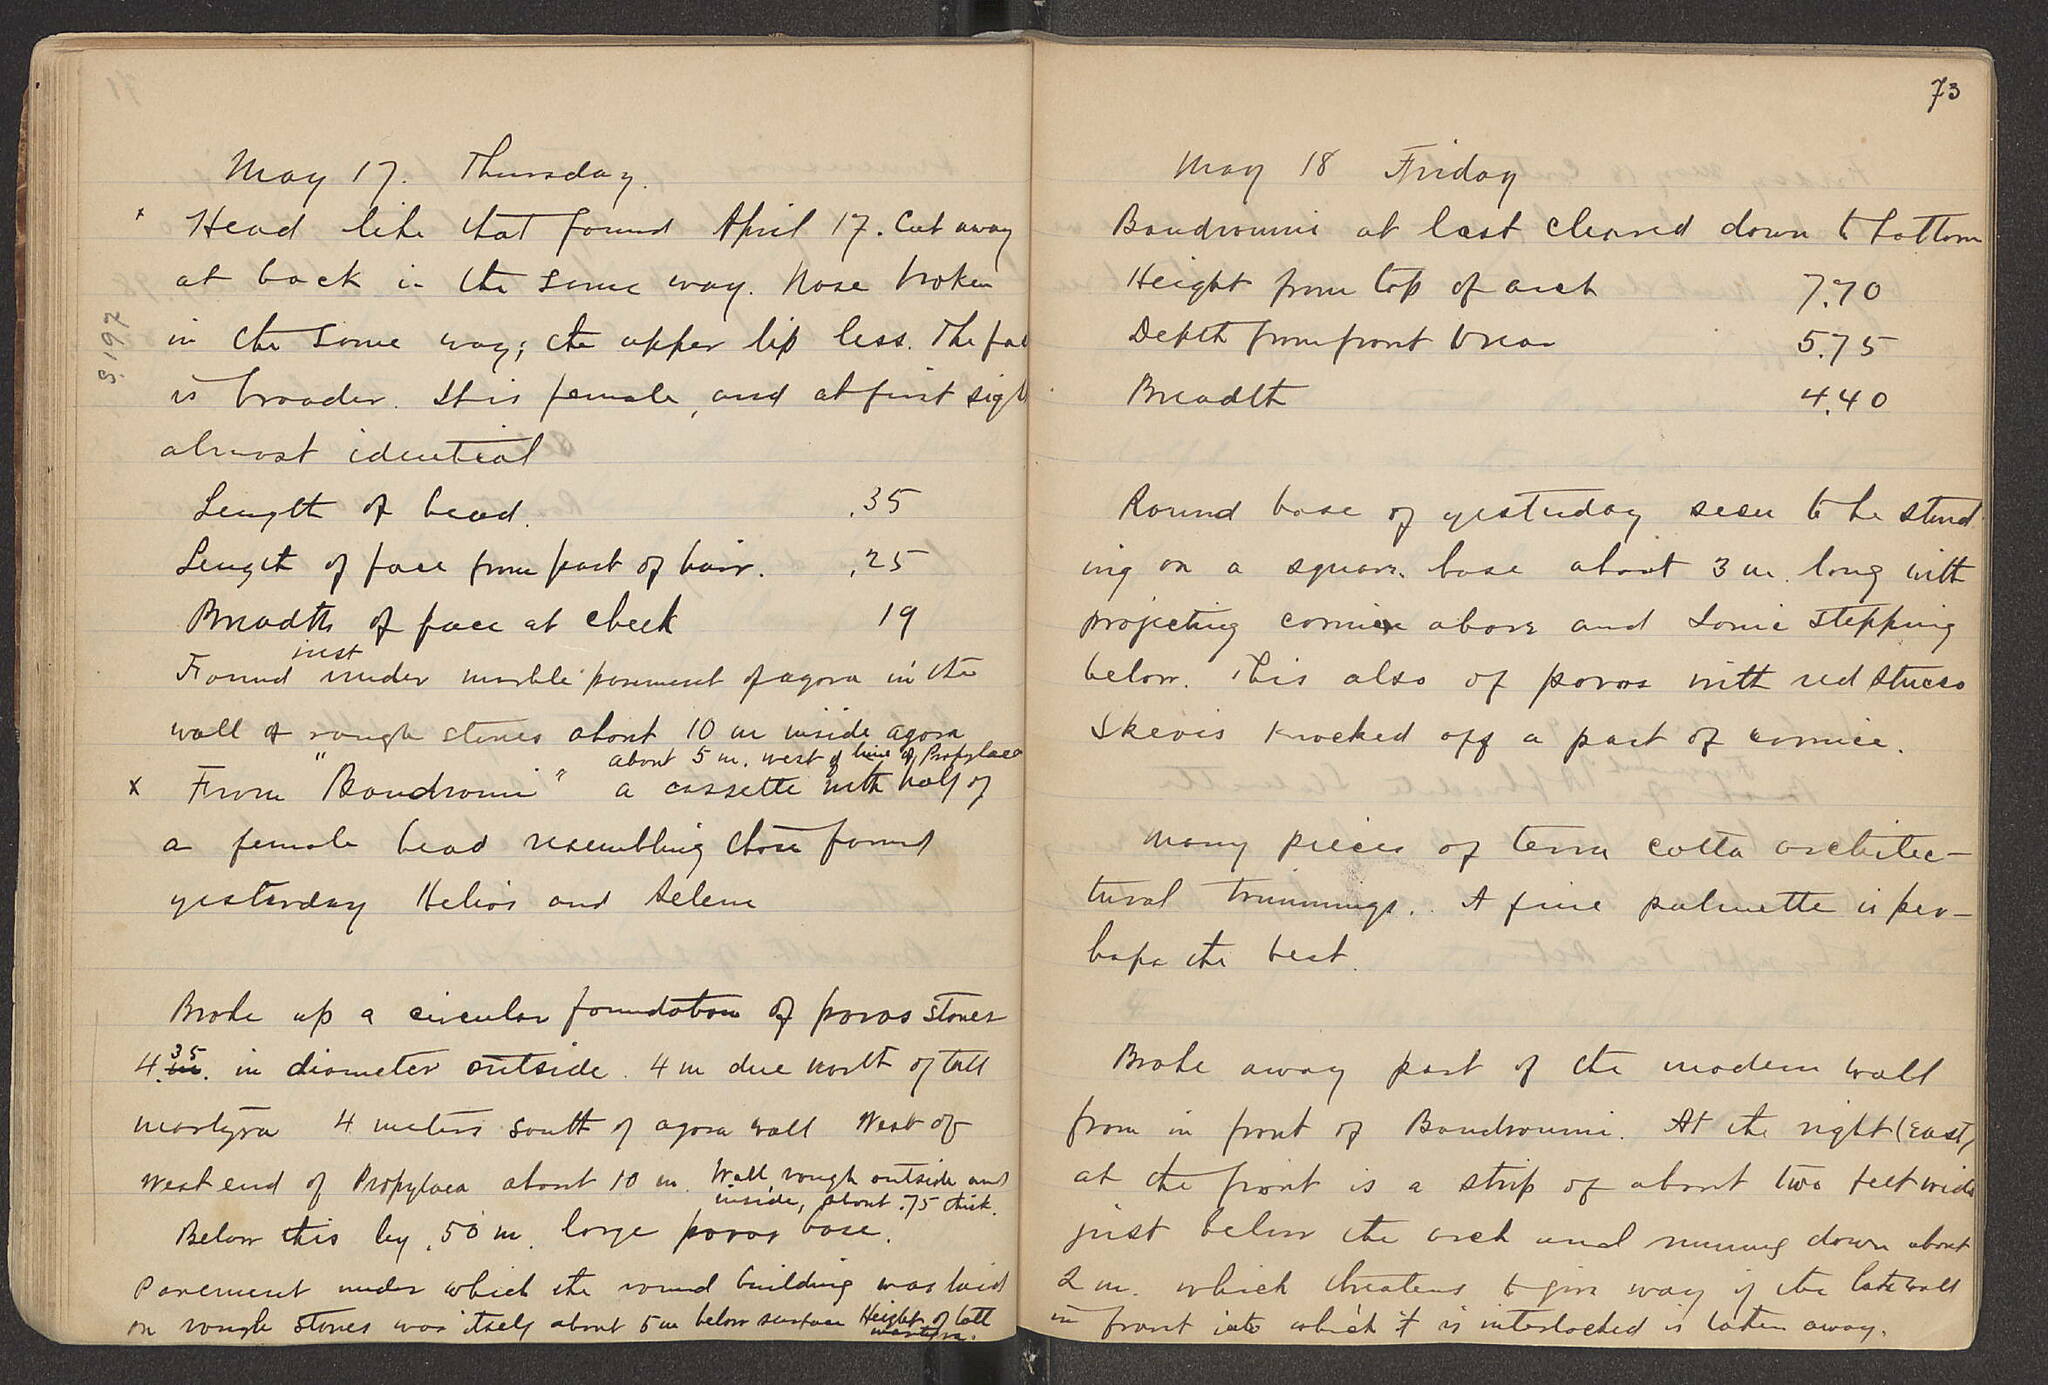 May 17. Thursday.
x Head like that found April 17. Cut away
at back in the same way. Nose broken
in the same way; the upper lip less. The fa
S. 197
is broader. It is female, and at first sigh
almost identical
Length of head. .35
Length of face from part of hair. .25
Breadth of face at cheek 19
just
Found under marble pavement of agora in the
wall of rough stones about 10 m inside agora
about 5 m. west of line of Propylaea
x From "Boudroumi" a cassette with half of
a female head resembling those found
yesterday Helios and Selene
Broke up a circular foundation of poros stones
4.35 m. in diameter outside. 4 m due north of tall
martyra 4 meters south of agora wall West of
West end of Propylaea about 10 m. Wall rough outside and
inside, about .75 thick.
Below this by .50 m. large poros base.
Pavement under which the round building was laid
on rough stones was itself about 5 m below surface Height of tall
martyra.
73
May 18 Friday
Boudroumi at last cleared down to bottom
Height from top of arch 7.70
Depth from front to rear 5.75
Breadth 4.40
Round base of yesterday seen to be stand
ing on a square base about 3 m. long with
projecting cornice above and Ionic stepping
below. This also of poros with red stucco
Skevis knocked off a part of cornice.
Many pieces of terra cotta architec-
tural trimmings. A fine palmette is per-
haps the best.
Broke away part of the modern wall
from in front of Boudroumi. At the right (east)
at the front is a strip of about two feet wide
just below the arch and running down about
2 m. which threatens to give way if the late wall
in front into which it is interlocked is taken away.